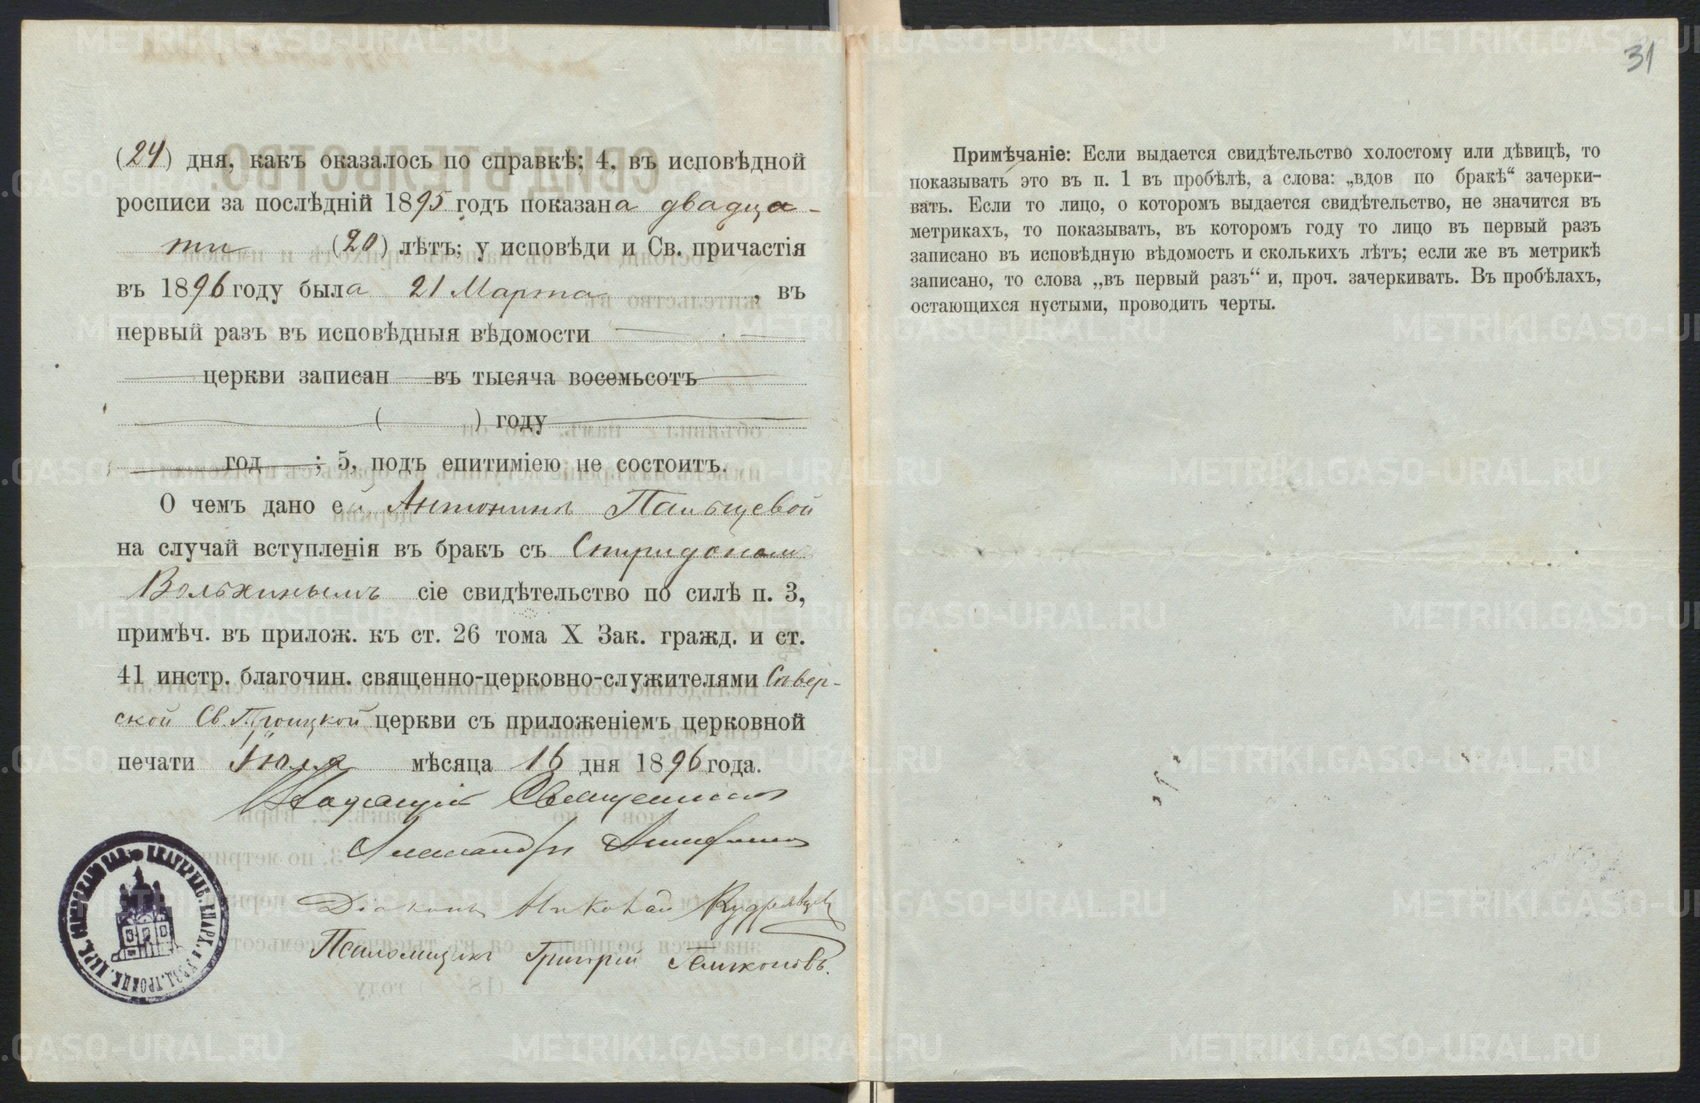 31
(24) дня, какъ оказалось по справкѣ; 4, въ исповѣдной
росписи за послѣдній 1895 годъ показана двадца-
ти (20) лѣтъ; у исповѣди и Св. причастія
въ 1896 году была 21 Марта, въ
первый разъ въ исповѣдныя вѣдомости
церкви записан въ тысяча восемьсотъ
( ) году
год ; 5, подъ епитиміею не состоитъ.
О чемъ дано ей Антонинѣ Пальцевой
на случай вступленія въ бракъ съ Спиридономъ
Вольхинымъ сіе свидѣтельство по силѣ п. 3,
примѣч. въ прилож. къ ст. 26 тома X Зак. гражд. и ст.
41 инстр. благочин. священно-церковно-служителями Сѣвер-
ской Св. Троицкой церкви съ приложеніемъ церковной
печати Іюля мѣсяца 16 дня 1896 года.
Священникъ
Александръ
Діаконъ Николай Кудрявцевъ
Псаломщикъ Григорій
Примѣчаніе: Если выдается свидѣтельство холостому или дѣвицѣ, то
показывать это въ п. 1 въ пробѣлѣ, а слова: „вдов по бракѣ“ зачерки-
вать. Если то лицо, о которомъ выдается свидѣтельство, не значится въ
метрикахъ, то показывать, въ которомъ году то лицо въ первый разъ
записано въ исповѣдную вѣдомость и сколькихъ лѣтъ; если же въ метрикѣ
записано, то слова „въ первый разъ“ и, проч. зачеркивать. Въ пробѣлахъ,
остающихся пустыми, проводить черты.
METRIKI.GASO-URAL.RU